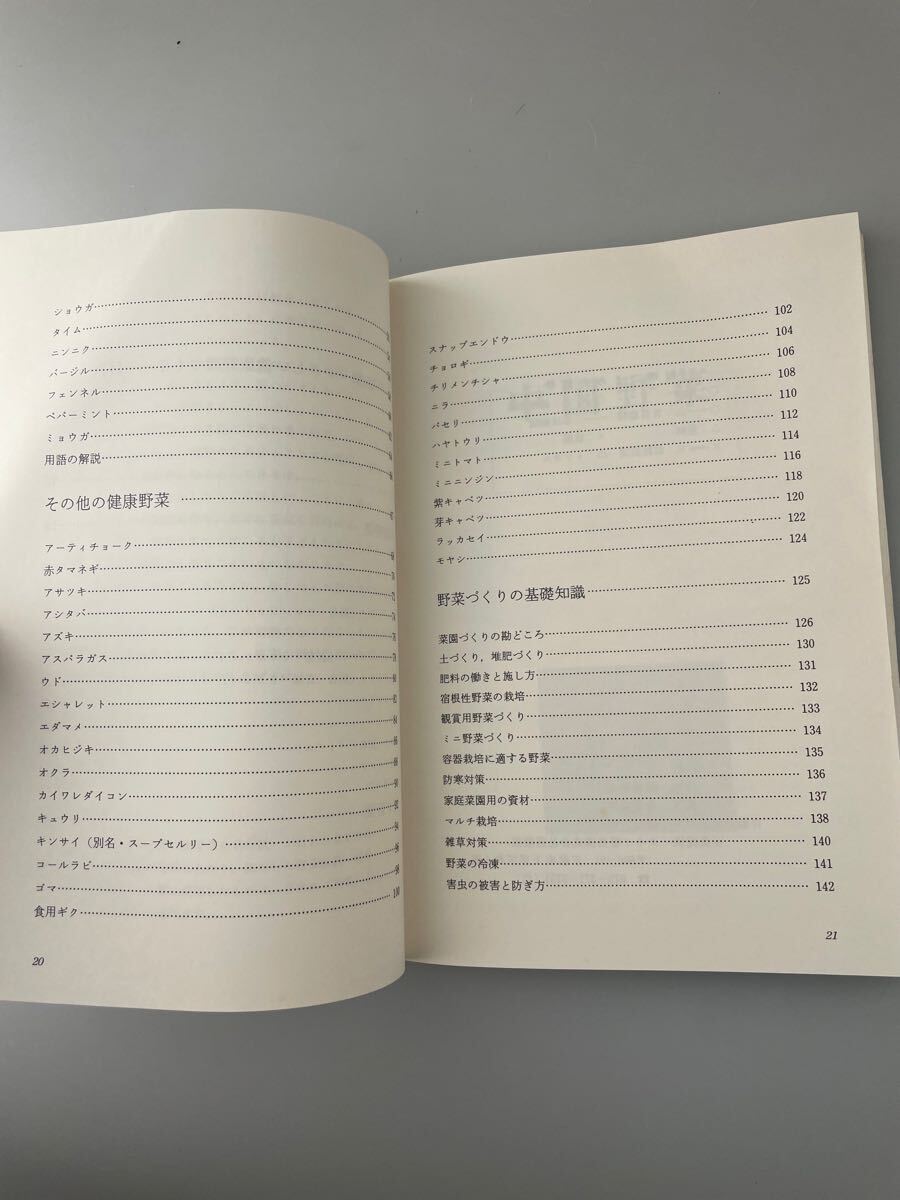 ショウガ
タイム
ニンニク
バージル
フェンネル
ペパーミント
ミョウガ
用語の解説
その他の健康野菜
アーティチョーク 68
赤タマネギ 70
アサツキ 72
アシタバ 74
アズキ 76
アスパラガス 78
ウド 80
エシャレット 82
エダマメ 84
オカヒジキ 86
オクラ 88
カイワレダイコン 90
キュウリ 92
キンサイ（別名・スープセルリー） 94
コールラビ 96
ゴマ 98
食用ギク 100
20
スナップエンドウ 102
チョロギ 104
チリメンチシャ 106
ニラ 108
パセリ 110
ハヤトウリ 112
ミニトマト 114
ミニニンジン 116
紫キャベツ 118
芽キャベツ 120
ラッカセイ 122
モヤシ 124
野菜づくりの基礎知識 125
菜園づくりの勘どころ 126
土づくり，堆肥づくり 130
肥料の働きと施し方 131
宿根性野菜の栽培 132
観賞用野菜づくり 133
ミニ野菜づくり 134
容器栽培に適する野菜 135
防寒対策 136
家庭菜園用の資材 137
マルチ栽培 138
雑草対策 140
野菜の冷凍 141
害虫の被害と防ぎ方 142
21